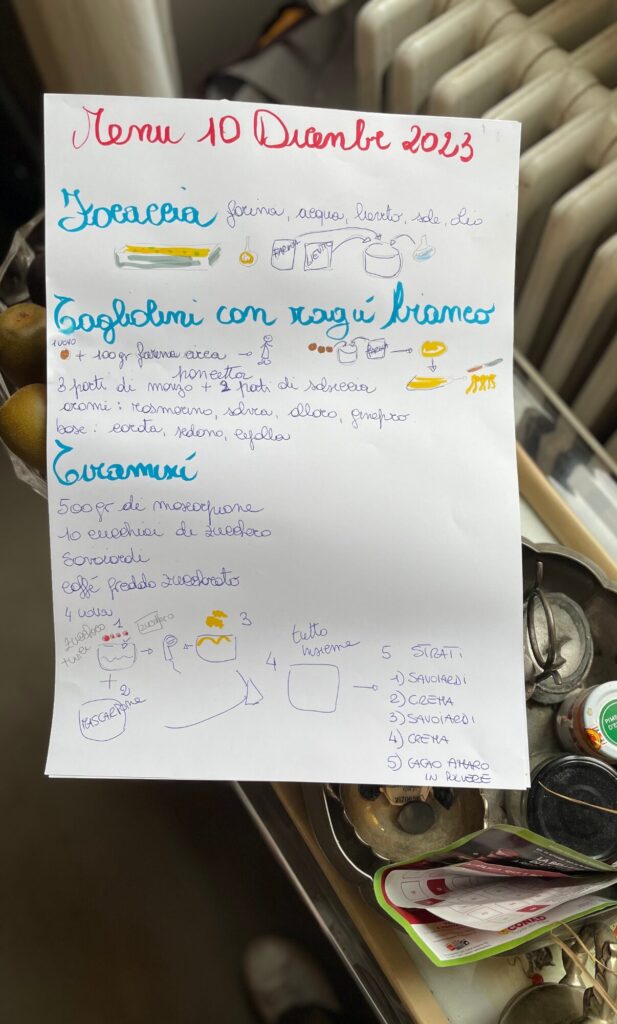 Menu 10 Dicembre 2023
Focaccia farina, acqua, lievito, sale, olio
FARINA
LIEVITO
Tagliolini con ragú bianco
1 UOVO
+ 100gr farina circa
FARINA
pancetta
3 parti di manzo + 2 parti di salsiccia
aromi: rosmarino, salvia, alloro, ginepro
base: carota, sedano, cipolla
Tiramisú
500gr di mascarpone
10 cucchiai di zucchero
Savoiardi
caffé freddo zuccherato
4 uova
zucchero
1
zucchero
3
+
2
MASCARPONE
4
tutto
insieme
5 STRATI
1) SAVOIARDI
2) CREMA
3) SAVOIARDI
4) CREMA
5) CACAO AMARO
IN POLVERE
CONAD